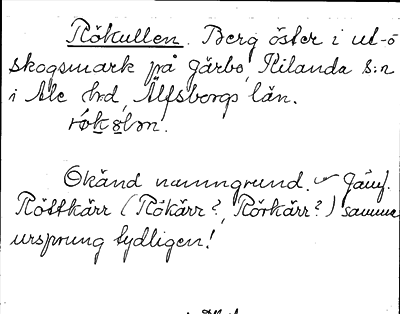 Rökullen. Berg öster i ut-
skogsmark på Gärbo, Rilanda s:n
i Ale hd, Älfsborgs län.
rökələn.
Okänd namngrund. Jämf.
Röttkärr (Rökärr?, Rörkärr?) samma
ursprung tydligen!